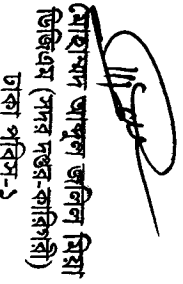 মোহাম্মদ আব্দুল জলিল মিয়া
ডিজিএম (সদর দপ্তর-কারিগরী)
ঢাকা পবিস-১